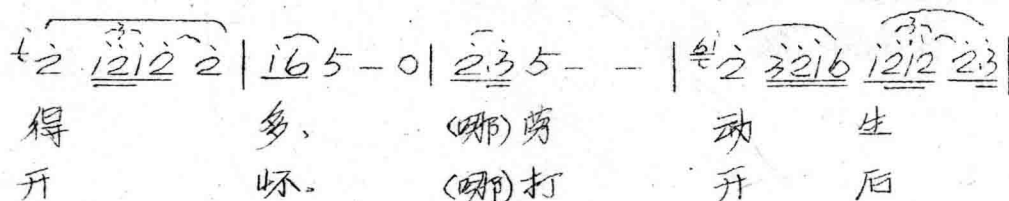 i 2̇ 1̇2̇1̇2̇ 2̇ | 1̇6 5 – 0 | 2̇.3̇ 5 – – | 6i 2̇ 3̇2̇1̇6 1̇2̇1̇2̇ 2̇.3̇ |
得 多、 (哪)劳 动 生
开 怀。 (哪)打 开 后